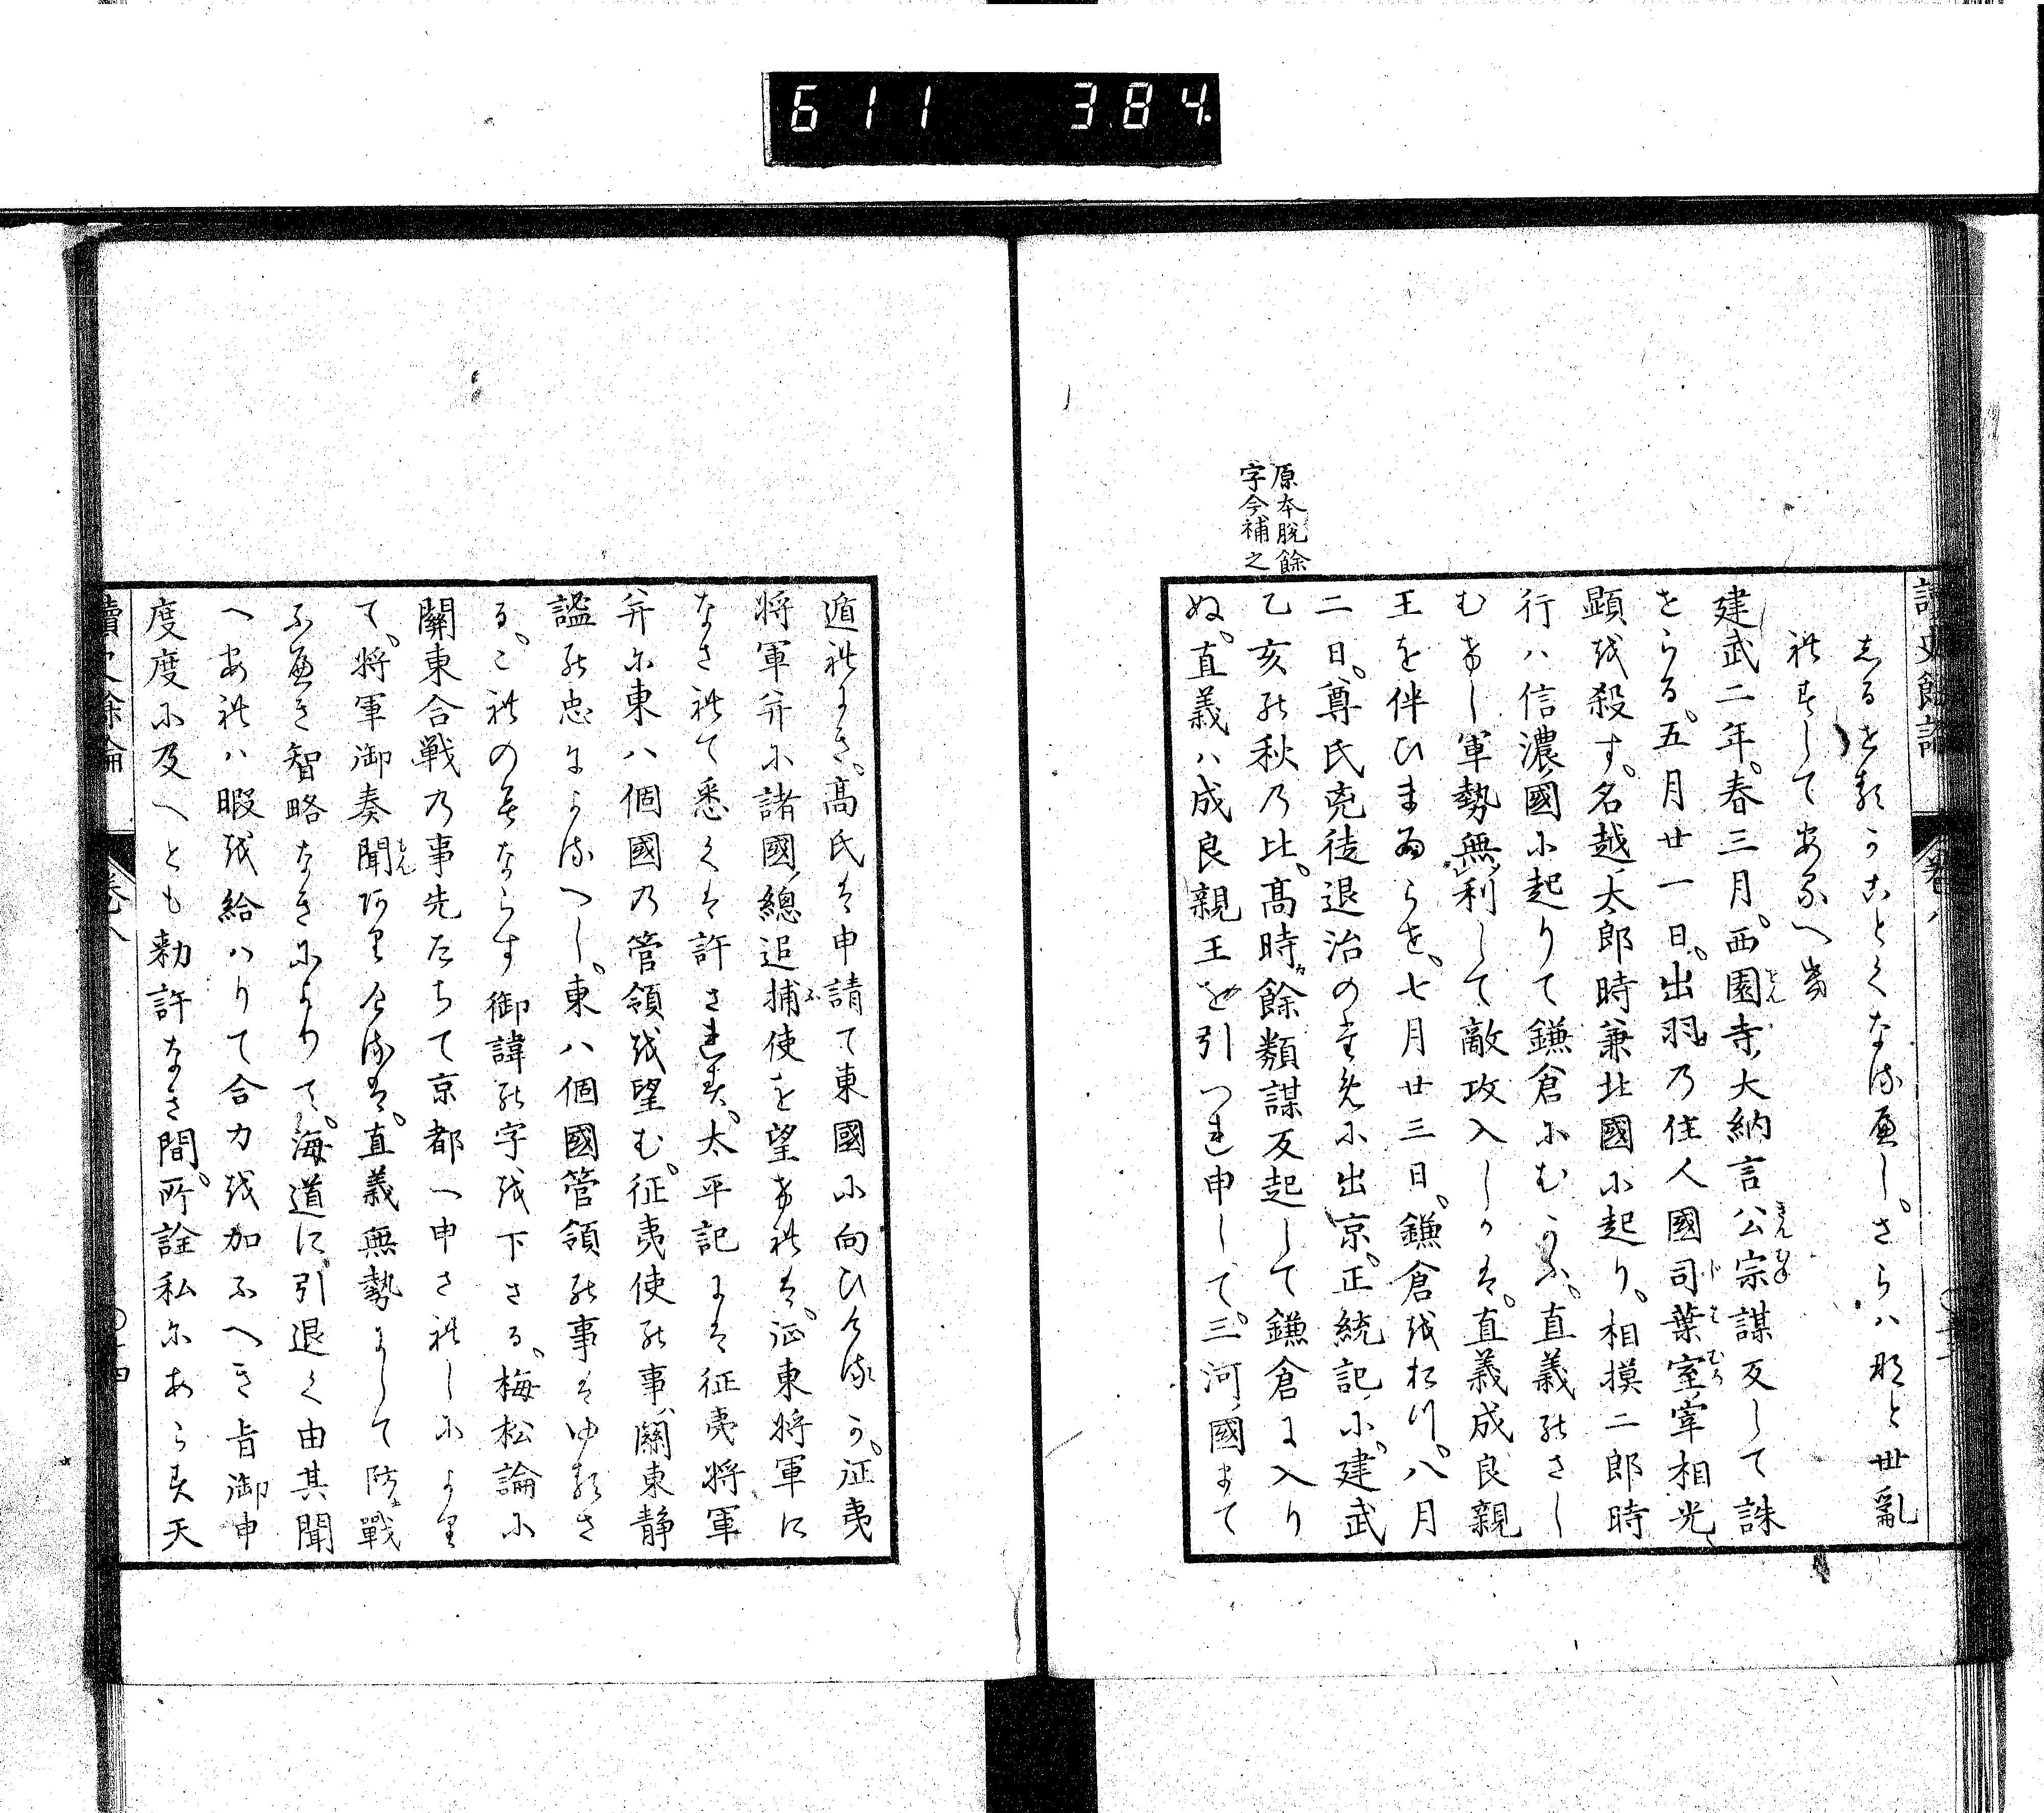 611 384
讀史餘論
卷八
しるせるうことくなるへし。さらハ形と世亂
れすしてあるへき
建武二年。春三月。西園寺大納言公宗謀反して誅
せらる。五月廿一日。出羽乃住人國司葉室宰相光
顕を殺す。名越太郎時兼北國に起り。相摸二郎時
行ハ信濃國に起りて鎌倉にむかふ。直義のさし
むけし軍勢無利して敵攻入しかは。直義成良親
王を伴ひまゐらせ。七月廿三日。鎌倉をおつ。八月
二日。尊氏兇徒退治のために出京。正統記に。建武
乙亥の秋乃比。高時余類謀反起して鎌倉に入り
ぬ。直義ハ成良親王を引つれ申して。三河國まて
原本脱餘
字今補之
遁れにき。高氏は申請て東國に向ひけるか。征夷
将軍并に諸國總追捕使を望けれは。征東将軍に
なされて悉くは許されす。太平記には征夷将軍
并に東八個國乃管領を望む。征夷使の事。關東静
謐の忠によるへし。東八個國管領の事はゆるさ
る。これのみならす御諱の字を下さる。梅松論に
關東合戰乃事先たちて京都へ申されしにより
て。将軍御奏聞ありけるは。直義無勢にして防戰
ふへき智略なきによりて。海道に引退く由其聞
へあれハ暇を給ハりて合力を加ふへき旨御申
度度に及へとも勅許なき間。所詮私にあらす天
讀史餘論
卷八